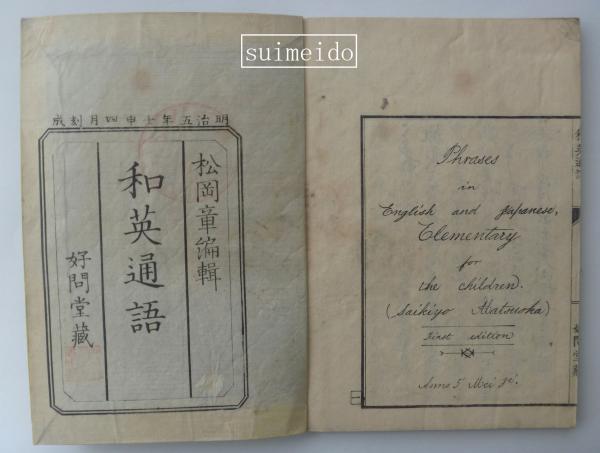 suimeido
明治五年壬申四月刻成
松岡章編輯
和英通語
好問堂藏
Phrases
in
English and Japanese,
Elementary
for
the children.
(Saikiyo Matsuoka)
First edition
Anno 5 Mei ji.
和英通語
一
好問堂藏